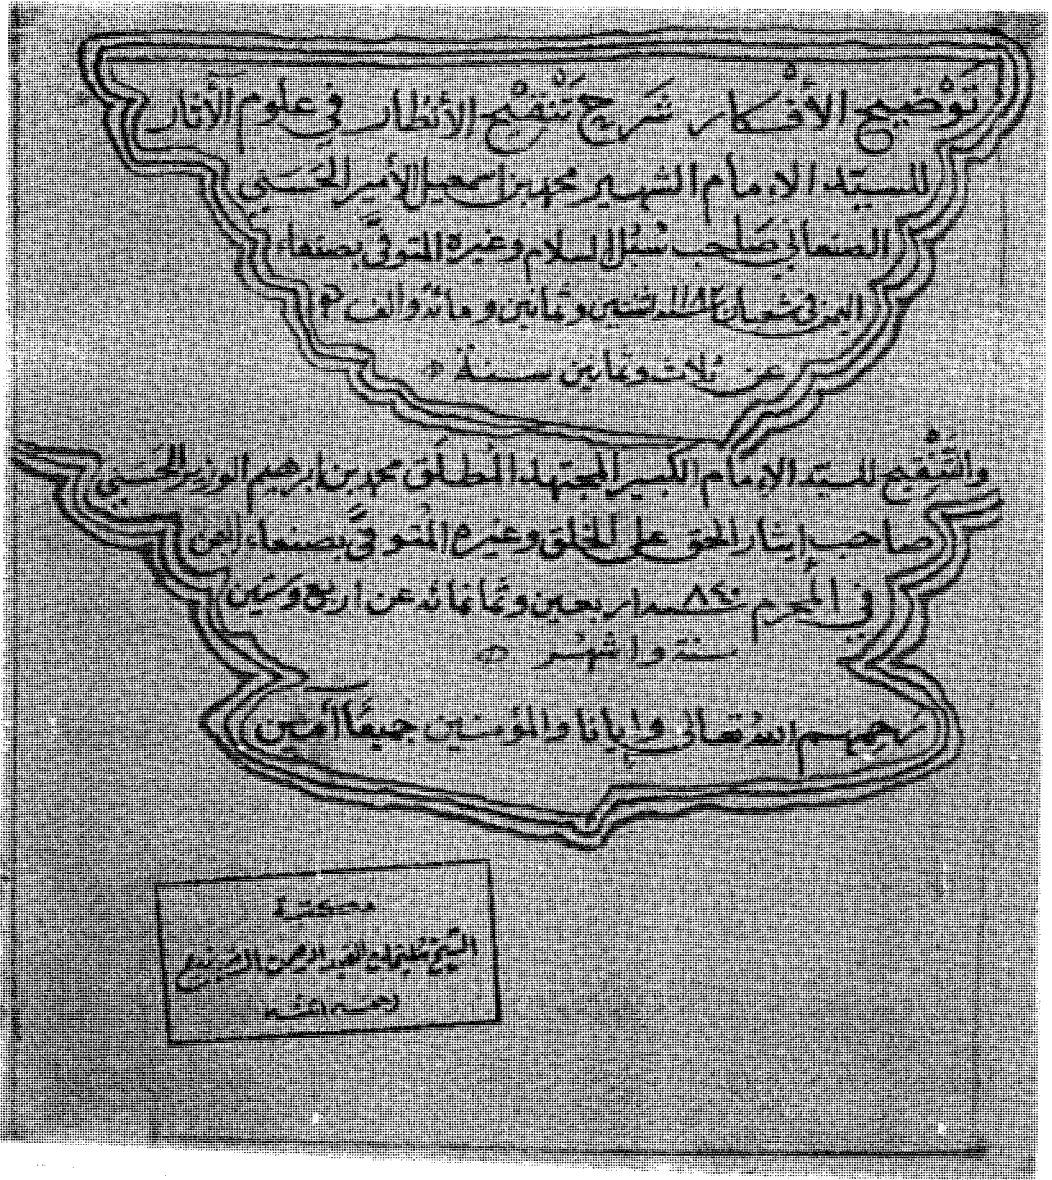 تَوْضيح الأَفْكار شَرح تَنْقيْح الأنظار في علوم الآثار
للسيّد الإمام الشهير محمد بن اسمعيل الأمير الحَسَني
الصنعاني صَاحب سُبُل السلام وغيره المتوفَّى بصنعاء
اليمن في شعبان سنة ١١٨٢ اثنتين وثمانين ومائة والف
عن ثلاث وثمانين سنة
والتَّنْقِيح للسيّد الإمام الكبير المجتهد المُطلَق محمد بن ابرهيم الوزير الحَسَني
صاحب إيثار الحق على الخلق وغيره المُتوفَّى بصنعاء اليمن
في المُحرم سنة ٨٤٠ اربعين وثمانمائة عن اربع وستين
سنة واشهُر
رَحِمهم اللهُ تعالى وإيانا والمؤمنين جميعًا آمين
مكتبة
الشيخ سليمان العبد الرحمن
رحمه الله